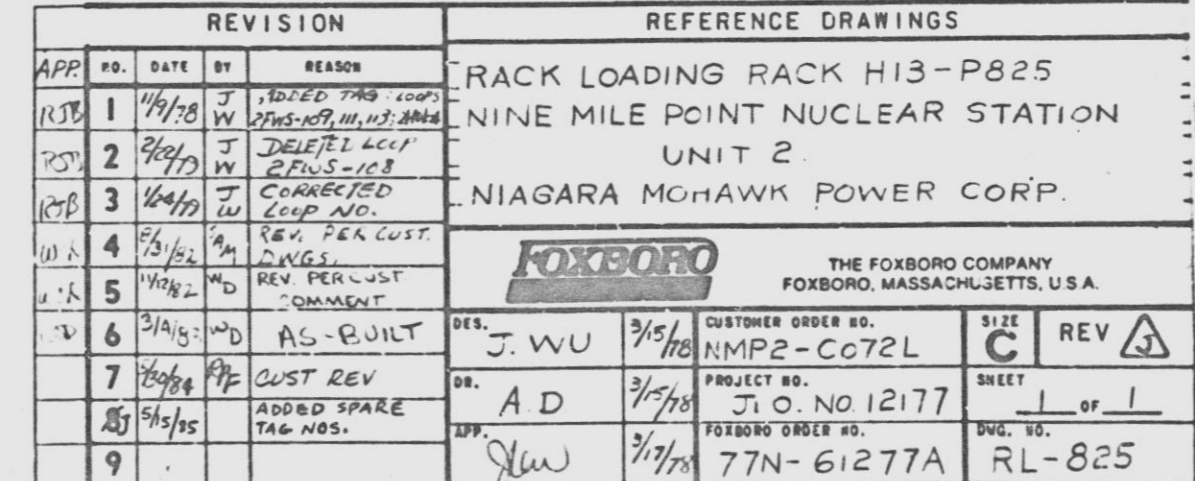 REVISION
APP. P.O. DATE BY REASON
RJB 1 11/9/78 JW ADDED TAG: LOOPS
2FWS-109, 111, 113;
2 2/22/79 JW DELETED LOOP
2FWS-108
RJB 3 1/24/79 JW CORRECTED
LOOP NO.
4 8/31/82 REV. PER CUST.
DWGS.
5 11/12/82 WD REV. PER CUST
COMMENT
6 WD AS-BUILT
7 5/30/84 CUST REV
J 5/15/85 ADDED SPARE
TAG NOS.
9
REFERENCE DRAWINGS
RACK LOADING RACK H13-P825
NINE MILE POINT NUCLEAR STATION
UNIT 2
NIAGARA MOHAWK POWER CORP.
FOXBORO
THE FOXBORO COMPANY
FOXBORO, MASSACHUSETTS, U.S.A.
DES. J. WU 3/15/78
CUSTOMER ORDER NO.
NMP2-C072L
SIZE C
REV J
DR. A.D 3/15/78
PROJECT NO.
J.O. NO. 12177
SHEET 1 OF 1
APP. 3/17/78
FOXBORO ORDER NO.
77N-61277A
DWG. NO.
RL-825